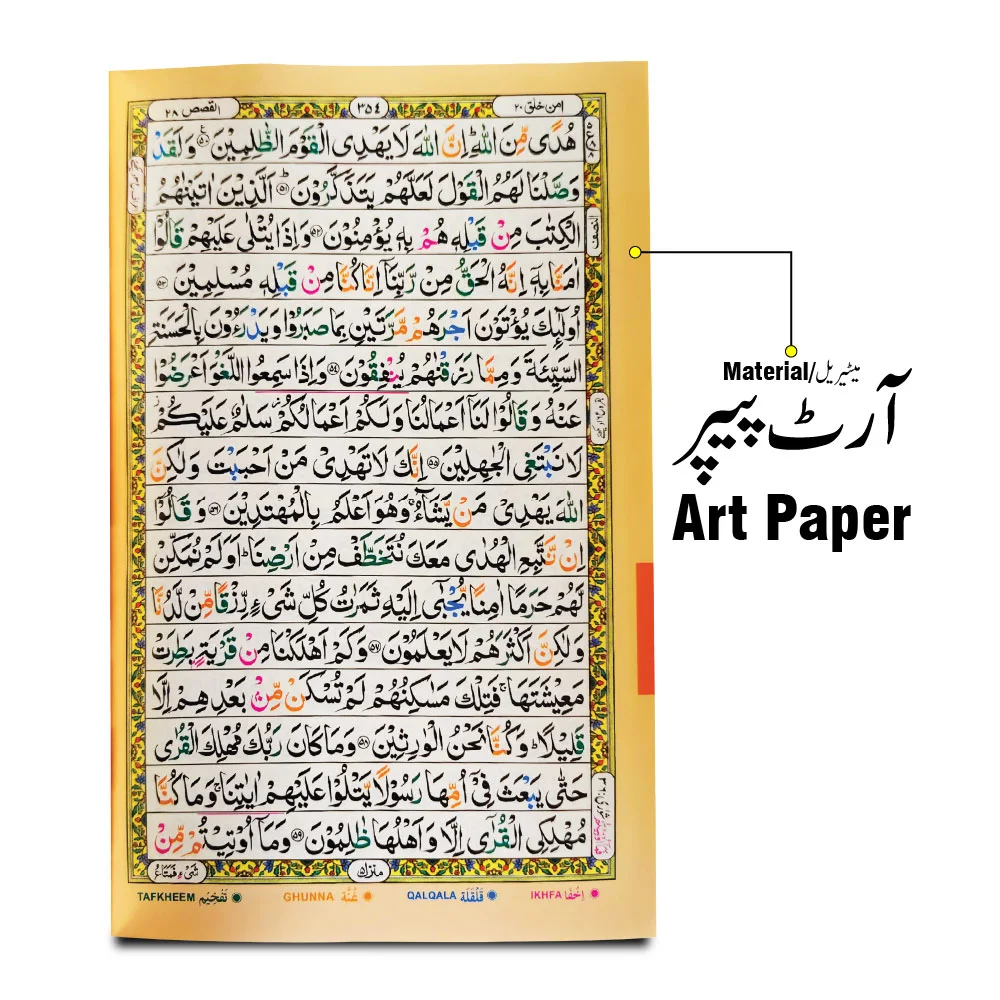 امن خلق ۲۰
۳۵٤
القصص ۲۸
هُدًى مِّنَ اللّٰهِ ؕ اِنَّ اللّٰهَ لَا يَهْدِى الْقَوْمَ الظّٰلِمِيْنَ ۵۰ وَلَقَدْ
وَصَّلْنَا لَهُمُ الْقَوْلَ لَعَلَّهُمْ يَتَذَكَّرُوْنَ ؕ ۵۱ اَلَّذِيْنَ اٰتَيْنٰهُمُ
الْكِتٰبَ مِنْ قَبْلِهٖ هُمْ بِهٖ يُؤْمِنُوْنَ ۵۲ وَاِذَا يُتْلٰى عَلَيْهِمْ قَالُوْۤا
النصف
اٰمَنَّا بِهٖۤ اِنَّهُ الْحَقُّ مِنْ رَّبِّنَاۤ اِنَّا كُنَّا مِنْ قَبْلِهٖ مُسْلِمِيْنَ ۵۳
اُولٰٓئِكَ يُؤْتَوْنَ اَجْرَهُمْ مَّرَّتَيْنِ بِمَا صَبَرُوْا وَيَدْرَءُوْنَ بِالْحَسَنَةِ
السَّيِّئَةَ وَمِمَّا رَزَقْنٰهُمْ يُنْفِقُوْنَ ۵۴ وَاِذَا سَمِعُوا اللَّغْوَ اَعْرَضُوْا
عَنْهُ وَقَالُوْا لَنَاۤ اَعْمَالُنَا وَلَكُمْ اَعْمَالُكُمْ سَلٰمٌ عَلَيْكُمْ
لَا نَبْتَغِى الْجٰهِلِيْنَ ۵۵ اِنَّكَ لَا تَهْدِىْ مَنْ اَحْبَبْتَ وَلٰكِنَّ
اللّٰهَ يَهْدِىْ مَنْ يَّشَآءُ ۚ وَهُوَ اَعْلَمُ بِالْمُهْتَدِيْنَ ۵۶ وَقَالُوْۤا
اِنْ نَّتَّبِعِ الْهُدٰى مَعَكَ نُتَخَطَّفْ مِنْ اَرْضِنَا ؕ اَوَلَمْ نُمَكِّنْ
لَّهُمْ حَرَمًا اٰمِنًا يُّجْبٰۤى اِلَيْهِ ثَمَرٰتُ كُلِّ شَىْءٍ رِّزْقًا مِّنْ لَّدُنَّا
وَلٰكِنَّ اَكْثَرَهُمْ لَا يَعْلَمُوْنَ ۵۷ وَكَمْ اَهْلَكْنَا مِنْ قَرْيَةٍ ۢ بَطِرَتْ
مَعِيْشَتَهَا ۚ فَتِلْكَ مَسٰكِنُهُمْ لَمْ تُسْكَنْ مِّنْۢ بَعْدِهِمْ اِلَّا
قَلِيْلًا ؕ وَكُنَّا نَحْنُ الْوٰرِثِيْنَ ۵۸ وَمَا كَانَ رَبُّكَ مُهْلِكَ الْقُرٰى
حَتّٰى يَبْعَثَ فِىْۤ اُمِّهَا رَسُوْلًا يَّتْلُوْا عَلَيْهِمْ اٰيٰتِنَا ۚ وَمَا كُنَّا
مُهْلِكِى الْقُرٰٓى اِلَّا وَاَهْلُهَا ظٰلِمُوْنَ ۵۹ وَمَاۤ اُوْتِيْتُمْ مِّنْ
منزل ۵
شَىْءٍ فَمَتَاعُ
TAFKHEEM تَفْخِيْم
GHUNNA غُنَّه
QALQALA قَلْقَلَة
IKHFA اِخْفَا
Material/میٹیریل
آرٹ پیپر
Art Paper